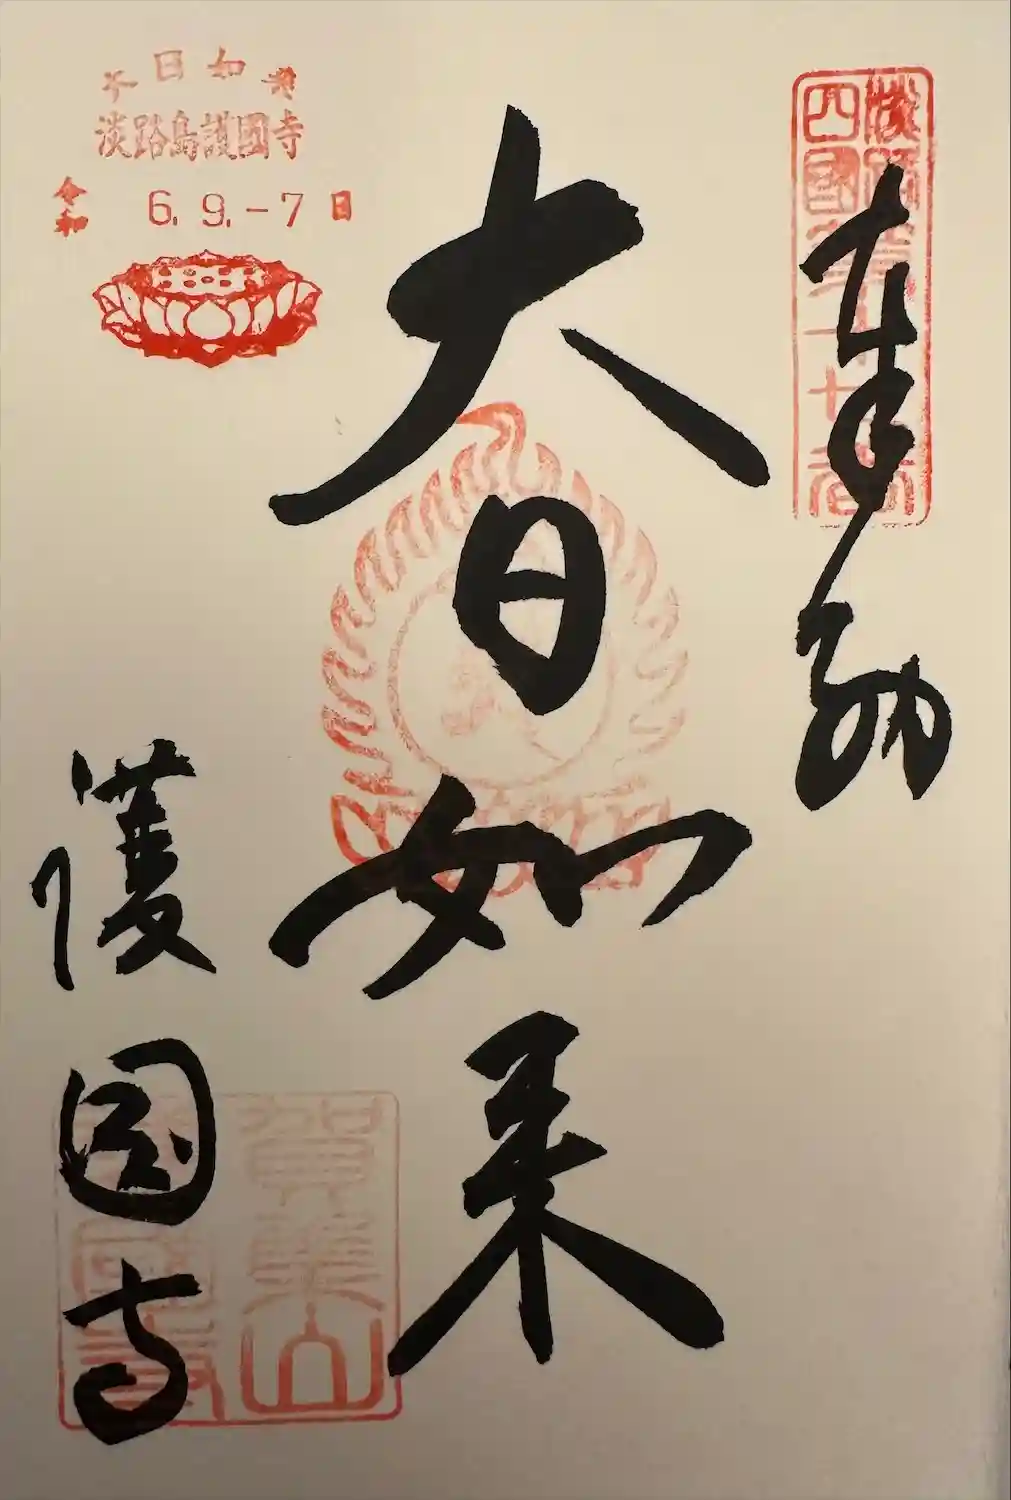 奉納
淡路
四國
大日如来
護国寺
大日如来
淡路島護國寺
令和 6.9.-7日
賀集山
護國寺